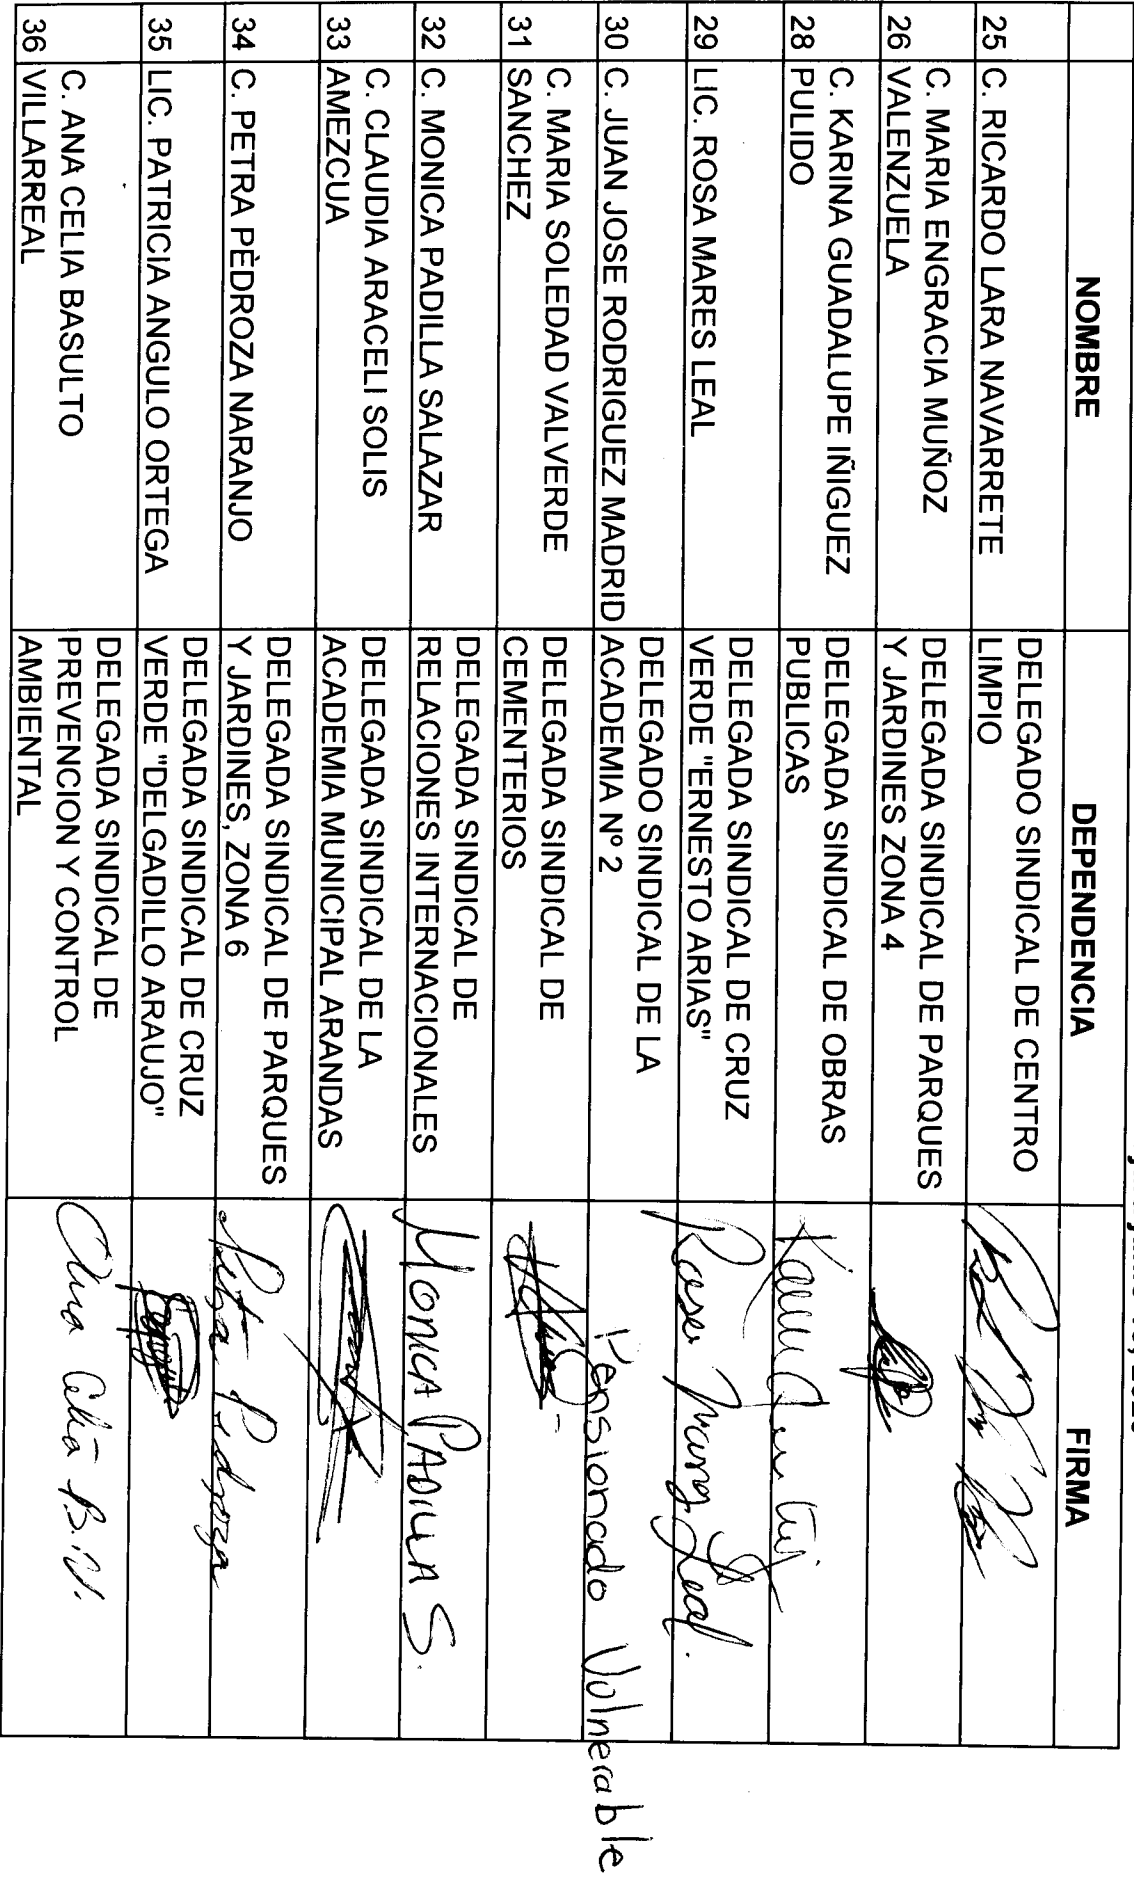 NOMBRE DEPENDENCIA FIRMA
25 C. RICARDO LARA NAVARRETE
DELEGADO SINDICAL DE CENTRO
LIMPIO
26 C. MARIA ENGRACIA MUÑOZ
VALENZUELA
DELEGADA SINDICAL DE PARQUES
Y JARDINES ZONA 4
28 C. KARINA GUADALUPE IÑIGUEZ
PULIDO
DELEGADA SINDICAL DE OBRAS
PUBLICAS
29 LIC. ROSA MARES LEAL
DELEGADA SINDICAL DE CRUZ
VERDE "ERNESTO ARIAS"
Rosa Mares Leal.
30 C. JUAN JOSE RODRIGUEZ MADRID
DELEGADO SINDICAL DE LA
ACADEMIA Nº 2
Pensionado Vulnerable
31 C. MARIA SOLEDAD VALVERDE
SANCHEZ
DELEGADA SINDICAL DE
CEMENTERIOS
32 C. MONICA PADILLA SALAZAR
DELEGADA SINDICAL DE
RELACIONES INTERNACIONALES
MONICA PADILLA S.
33 C. CLAUDIA ARACELI SOLIS
AMEZCUA
DELEGADA SINDICAL DE LA
ACADEMIA MUNICIPAL ARANDAS
34 C. PETRA PÈDROZA NARANJO
DELEGADA SINDICAL DE PARQUES
Y JARDINES, ZONA 6
Petra Pedroza
35 LIC. PATRICIA ANGULO ORTEGA
DELEGADA SINDICAL DE CRUZ
VERDE "DELGADILLO ARAUJO"
36 C. ANA CELIA BASULTO
VILLARREAL
DELEGADA SINDICAL DE
PREVENCION Y CONTROL
AMBIENTAL
Ana Celia B.V.